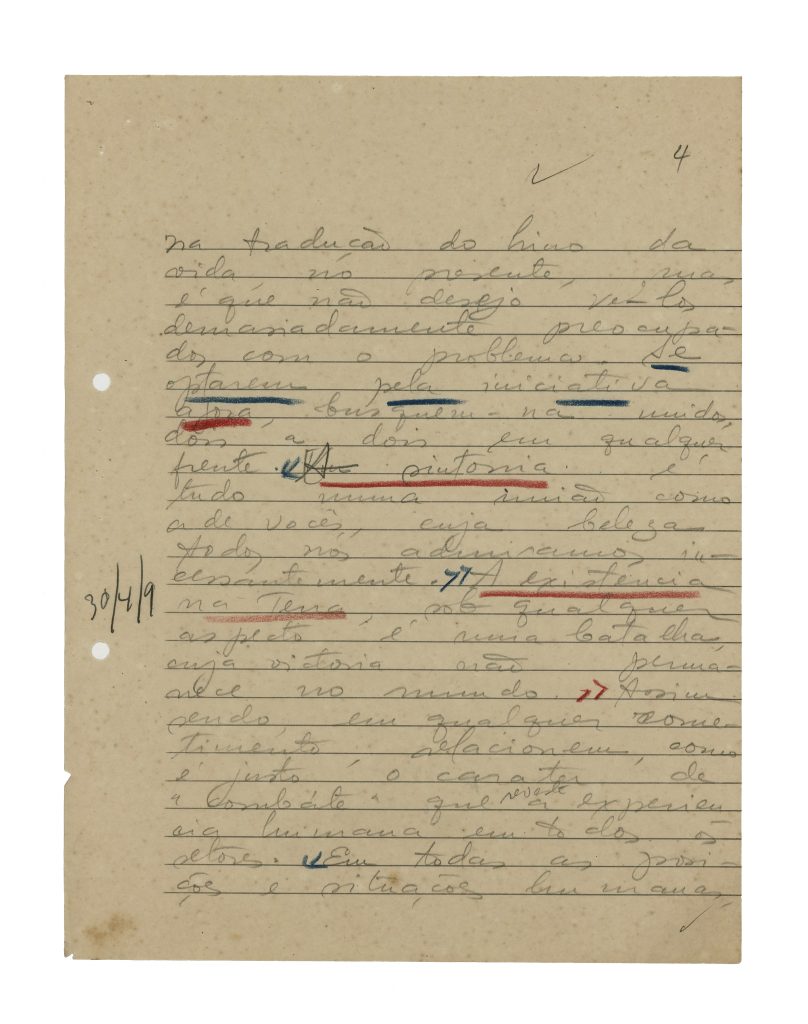 4
na tradução do hino da
vida no presente, mas
é que não desejo vê-los
demasiadamente preocupa-
dos com o problema. Se
optarem pela iniciativa
agora, busquem-na unidos,
dois a dois em qualquer
frente. A sintonia é
tudo numa união como
a de vocês, cuja beleza
todos nós admiramos in-
cessantemente. A existência
na Terra, sob qualquer
aspecto é uma batalha
cuja victoria não perma-
nece no mundo. Assim
sendo, em qualquer come-
timento, relacionem, como
é justo, o carater de
"combáte" que reveste a experien
cia humana em todos os
setores. Em todas as posi-
ções e situações humanas,
30/4/9